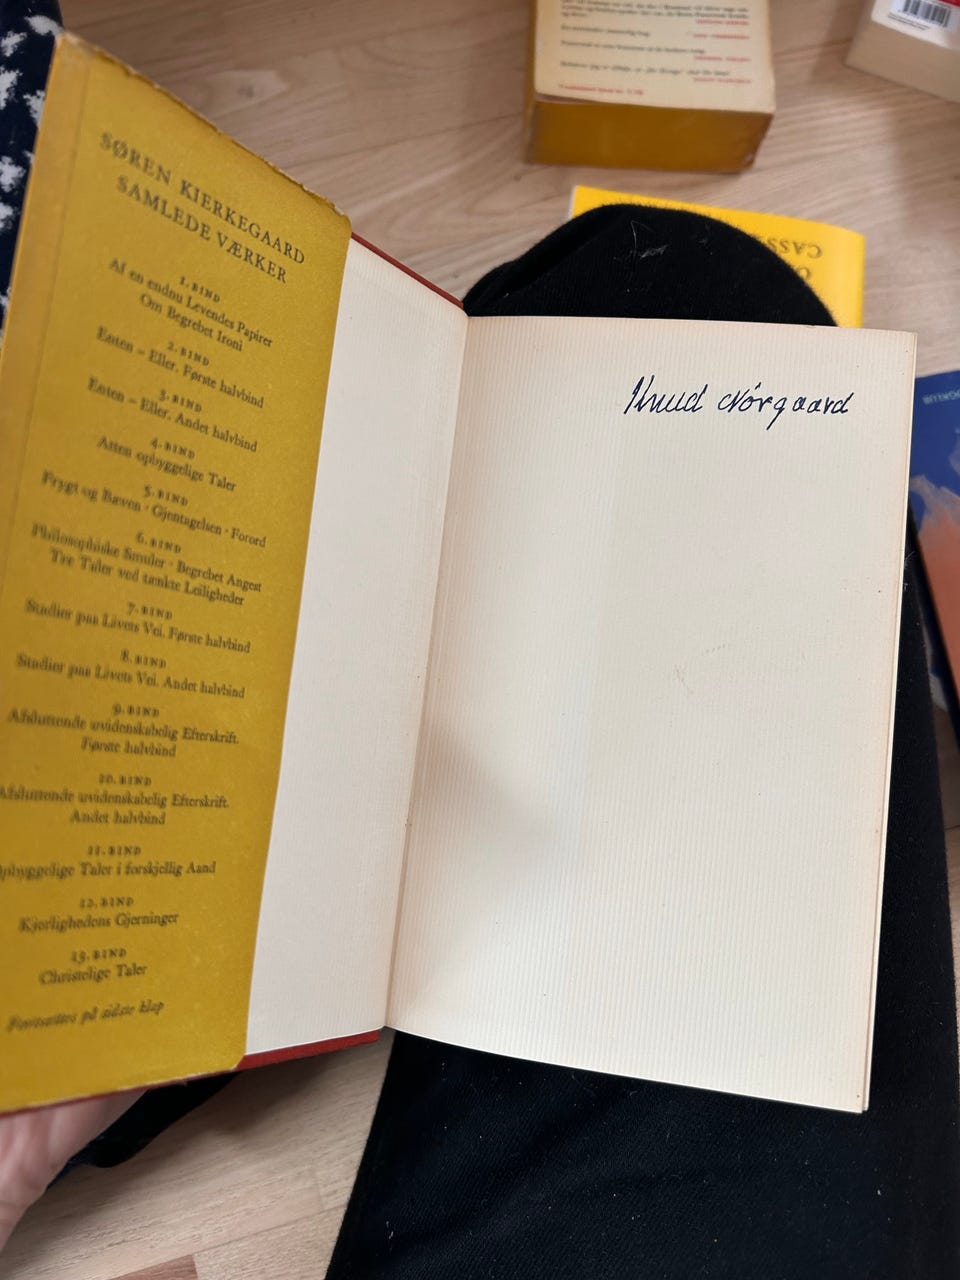 SØREN KIERKEGAARD
SAMLEDE VÆRKER
1. BIND
Af en endnu Levendes Papirer
Om Begrebet Ironi
2. BIND
Enten – Eller. Første halvbind
3. BIND
Enten – Eller. Andet halvbind
4. BIND
Atten opbyggelige Taler
5. BIND
Frygt og Bæven · Gjentagelsen · Forord
6. BIND
Philosophiske Smuler · Begrebet Angest
Tre Taler ved tænkte Leiligheder
7. BIND
Studier paa Livets Vei. Første halvbind
8. BIND
Studier paa Livets Vei. Andet halvbind
9. BIND
Afsluttende uvidenskabelig Efterskrift.
Første halvbind
10. BIND
Afsluttende uvidenskabelig Efterskrift.
Andet halvbind
11. BIND
Opbyggelige Taler i forskjellig Aand
12. BIND
Kjerlighedens Gjerninger
13. BIND
Christelige Taler
Fortsættes på sidste klap
Knud Nörgaard
CASS